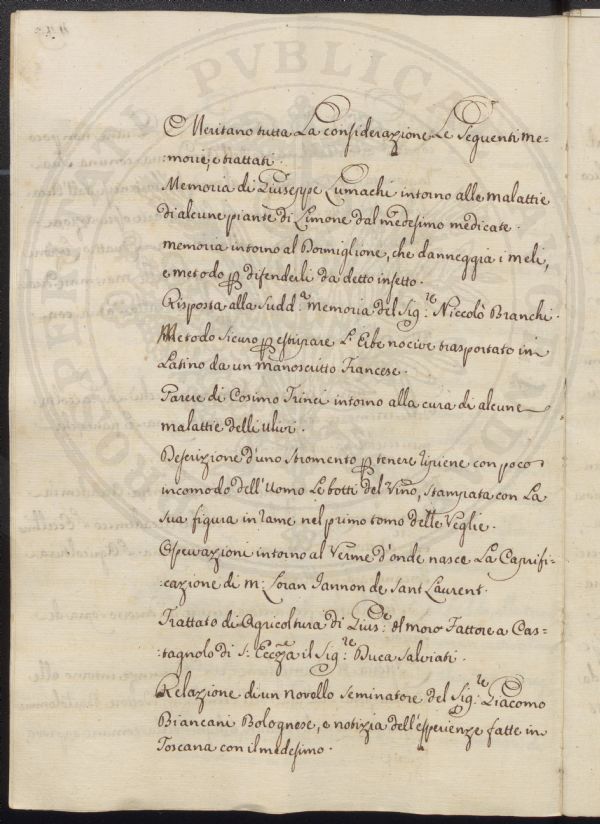 Meritano tutta La considerazione Le Seguenti me=
:morie, e trattati.
Memoria di Giuseppe Lumachi intorno alle malattie
di alcune piante di Limone dal medesimo medicate.
memoria intorno al Dormiglione, che danneggia i meli,
e metodo p difenderli da detto insetto.
Risposta alla Sudd:ª memoria del Sig:re Niccolò Branchi.
Metodo Sicuro p estirpare L'Erbe nocive trasportato in
Latino da un manoscritto Francese.
Parere di Cosimo Trinci intorno alla cura di alcune
malattie delli Ulivi.
Descrizione d'uno stromento p tenere ripiene con poco
incomodo dell'Uomo Le botti del Vino, stampata con La
sua figura in rame nel primo tomo delle Veglie.
Osservazioni intorno al Verme d'onde nasce La Caprifi=
:cazione di m: Loran Jannon de Sant Laurent.
Trattato di Agricoltura di Gius:e del moro Fattore a Cas=
:tagnolo di S: Eccza il Sig:re Duca Salviati.
Relazione di un novello seminatore del Sig:re Giacomo
Biancani Bolognese, e notizia dell'esperienze fatte in
Toscana con il medesimo.
PROSPERI VALENTI PUBLICA